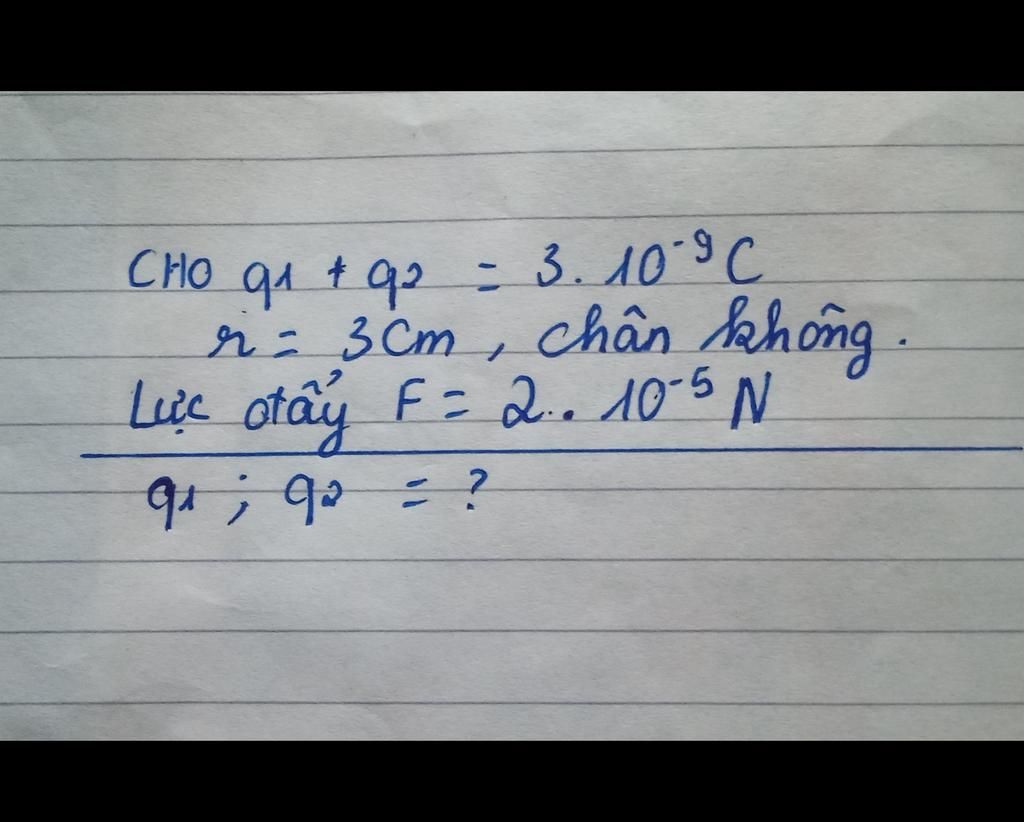 CHO q1 + q2 = 3. 10⁻⁹ C
r = 3 cm , chân không.
Lực đẩy F = 2.. 10⁻⁵ N
q1 ; q2 = ?